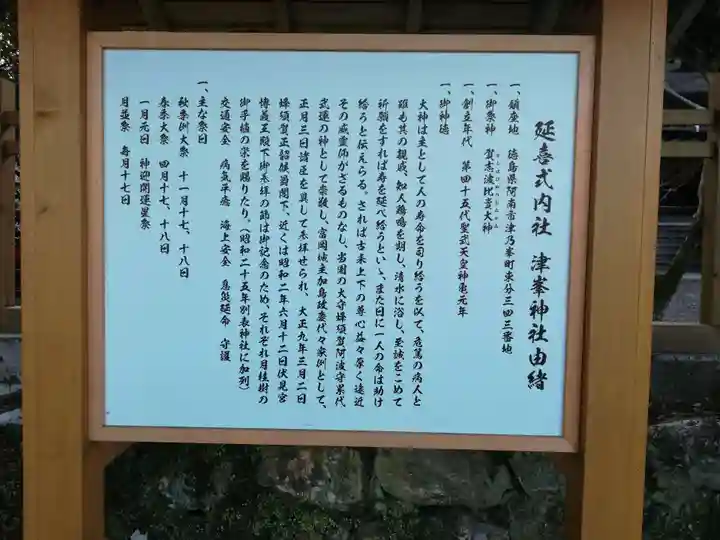 延喜式内社 津峯神社由緒
一、鎮座地 徳島県阿南市津乃峰町東分三四三番地
一、御祭神 賀志波比売大神
一、創立年代 第四十五代聖武天皇神亀元年
一、御神徳
大神は主として人の寿命を司り給うを以て、危篤の病人と
雖も其の親戚、知人鶏鳴を期し、清水に浴し、至誠をこめて
祈願をすれば寿を延べ給うといゝ、また日に一人の命は助け
給うと伝えらる。されば古来上下の尊心益々厚く遠近
その威霊仰がざるものなし、当国の大守蜂須賀阿波守累代
武運の神として崇敬し、富岡城主加島政慶代々家例として、
正月三日諸臣を具して参拝せられ、大正九年三月二日
蜂須賀正韶侯爵閣下、近くは昭和二年六月十二日伏見宮
博義王殿下御参拝の節は御記念のため、それぞれ月桂樹の
御手植の栄を賜りたり。(昭和二十五年別表神社に加列)
交通安全 病気平癒 海上安全 息災延命 守護
一、主な祭日
秋季例大祭 十一月十七、十八日
春季大祭 四月十七、十八日
一月元旦 神迎開運星祭
月並祭 毎月十七日